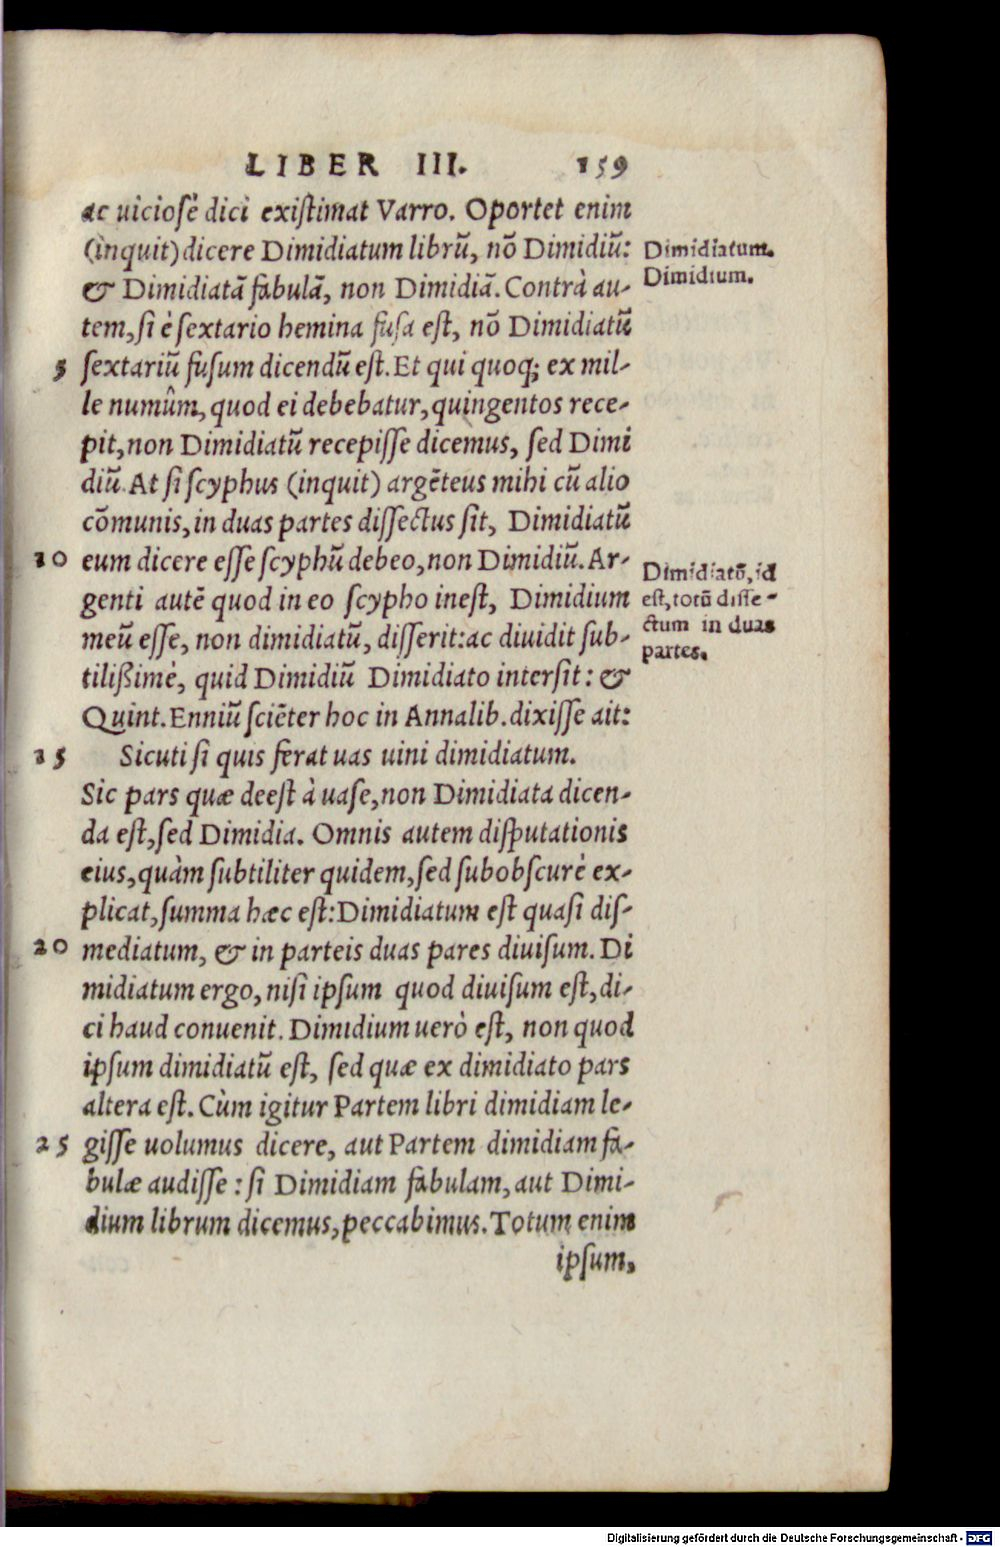 LIBER III. 159
ac uiciosè dici existimat Varro. Oportet enim
(inquit) dicere Dimidiatum librũ, nõ Dimidiũ:
& Dimidiatã fabulã, non Dimidiã. Contrà au-
tem, si è sextario hemina fusa est, nõ Dimidiatũ
5 sextariũ fusum dicendũ est. Et qui quoq; ex mil-
le numûm, quod ei debebatur, quingentos rece-
pit, non Dimidiatũ recepisse dicemus, sed Dimi
diũ. At si scyphus (inquit) argẽteus mihi cũ alio
cõmunis, in duas partes dissectus sit, Dimidiatũ
10 eum dicere esse scyphũ debeo, non Dimidiũ. Ar-
genti autẽ quod in eo scypho inest, Dimidium
meũ esse, non dimidiatũ, disserit: ac diuidit sub-
tilißimè, quid Dimidiũ Dimidiato intersit: &
Quint. Enniũ sciẽter hoc in Annalib. dixisse ait:
15 Sicuti si quis ferat uas uini dimidiatum.
Sic pars quæ deest à uase, non Dimidiata dicen-
da est, sed Dimidia. Omnis autem disputationis
eius, quàm subtiliter quidem, sed subobscurè ex-
plicat, summa hæc est: Dimidiatum est quasi dis-
20 mediatum, & in parteis duas pares diuisum. Di
midiatum ergo, nisi ipsum quod diuisum est, di-
ci haud conuenit. Dimidium uerò est, non quod
ipsum dimidiatũ est, sed quæ ex dimidiato pars
altera est. Cùm igitur Partem libri dimidiam le-
25 gisse uolumus dicere, aut Partem dimidiam fa-
bulæ audisse: si Dimidiam fabulam, aut Dimi-
dium librum dicemus, peccabimus. Totum enim
ipsum,
Dimidiatum.
Dimidium.
Dimidiatõ, id
est, totũ disse-
ctum in duas
partes.
Digitalisierung gefördert durch die Deutsche Forschungsgemeinschaft - DFG